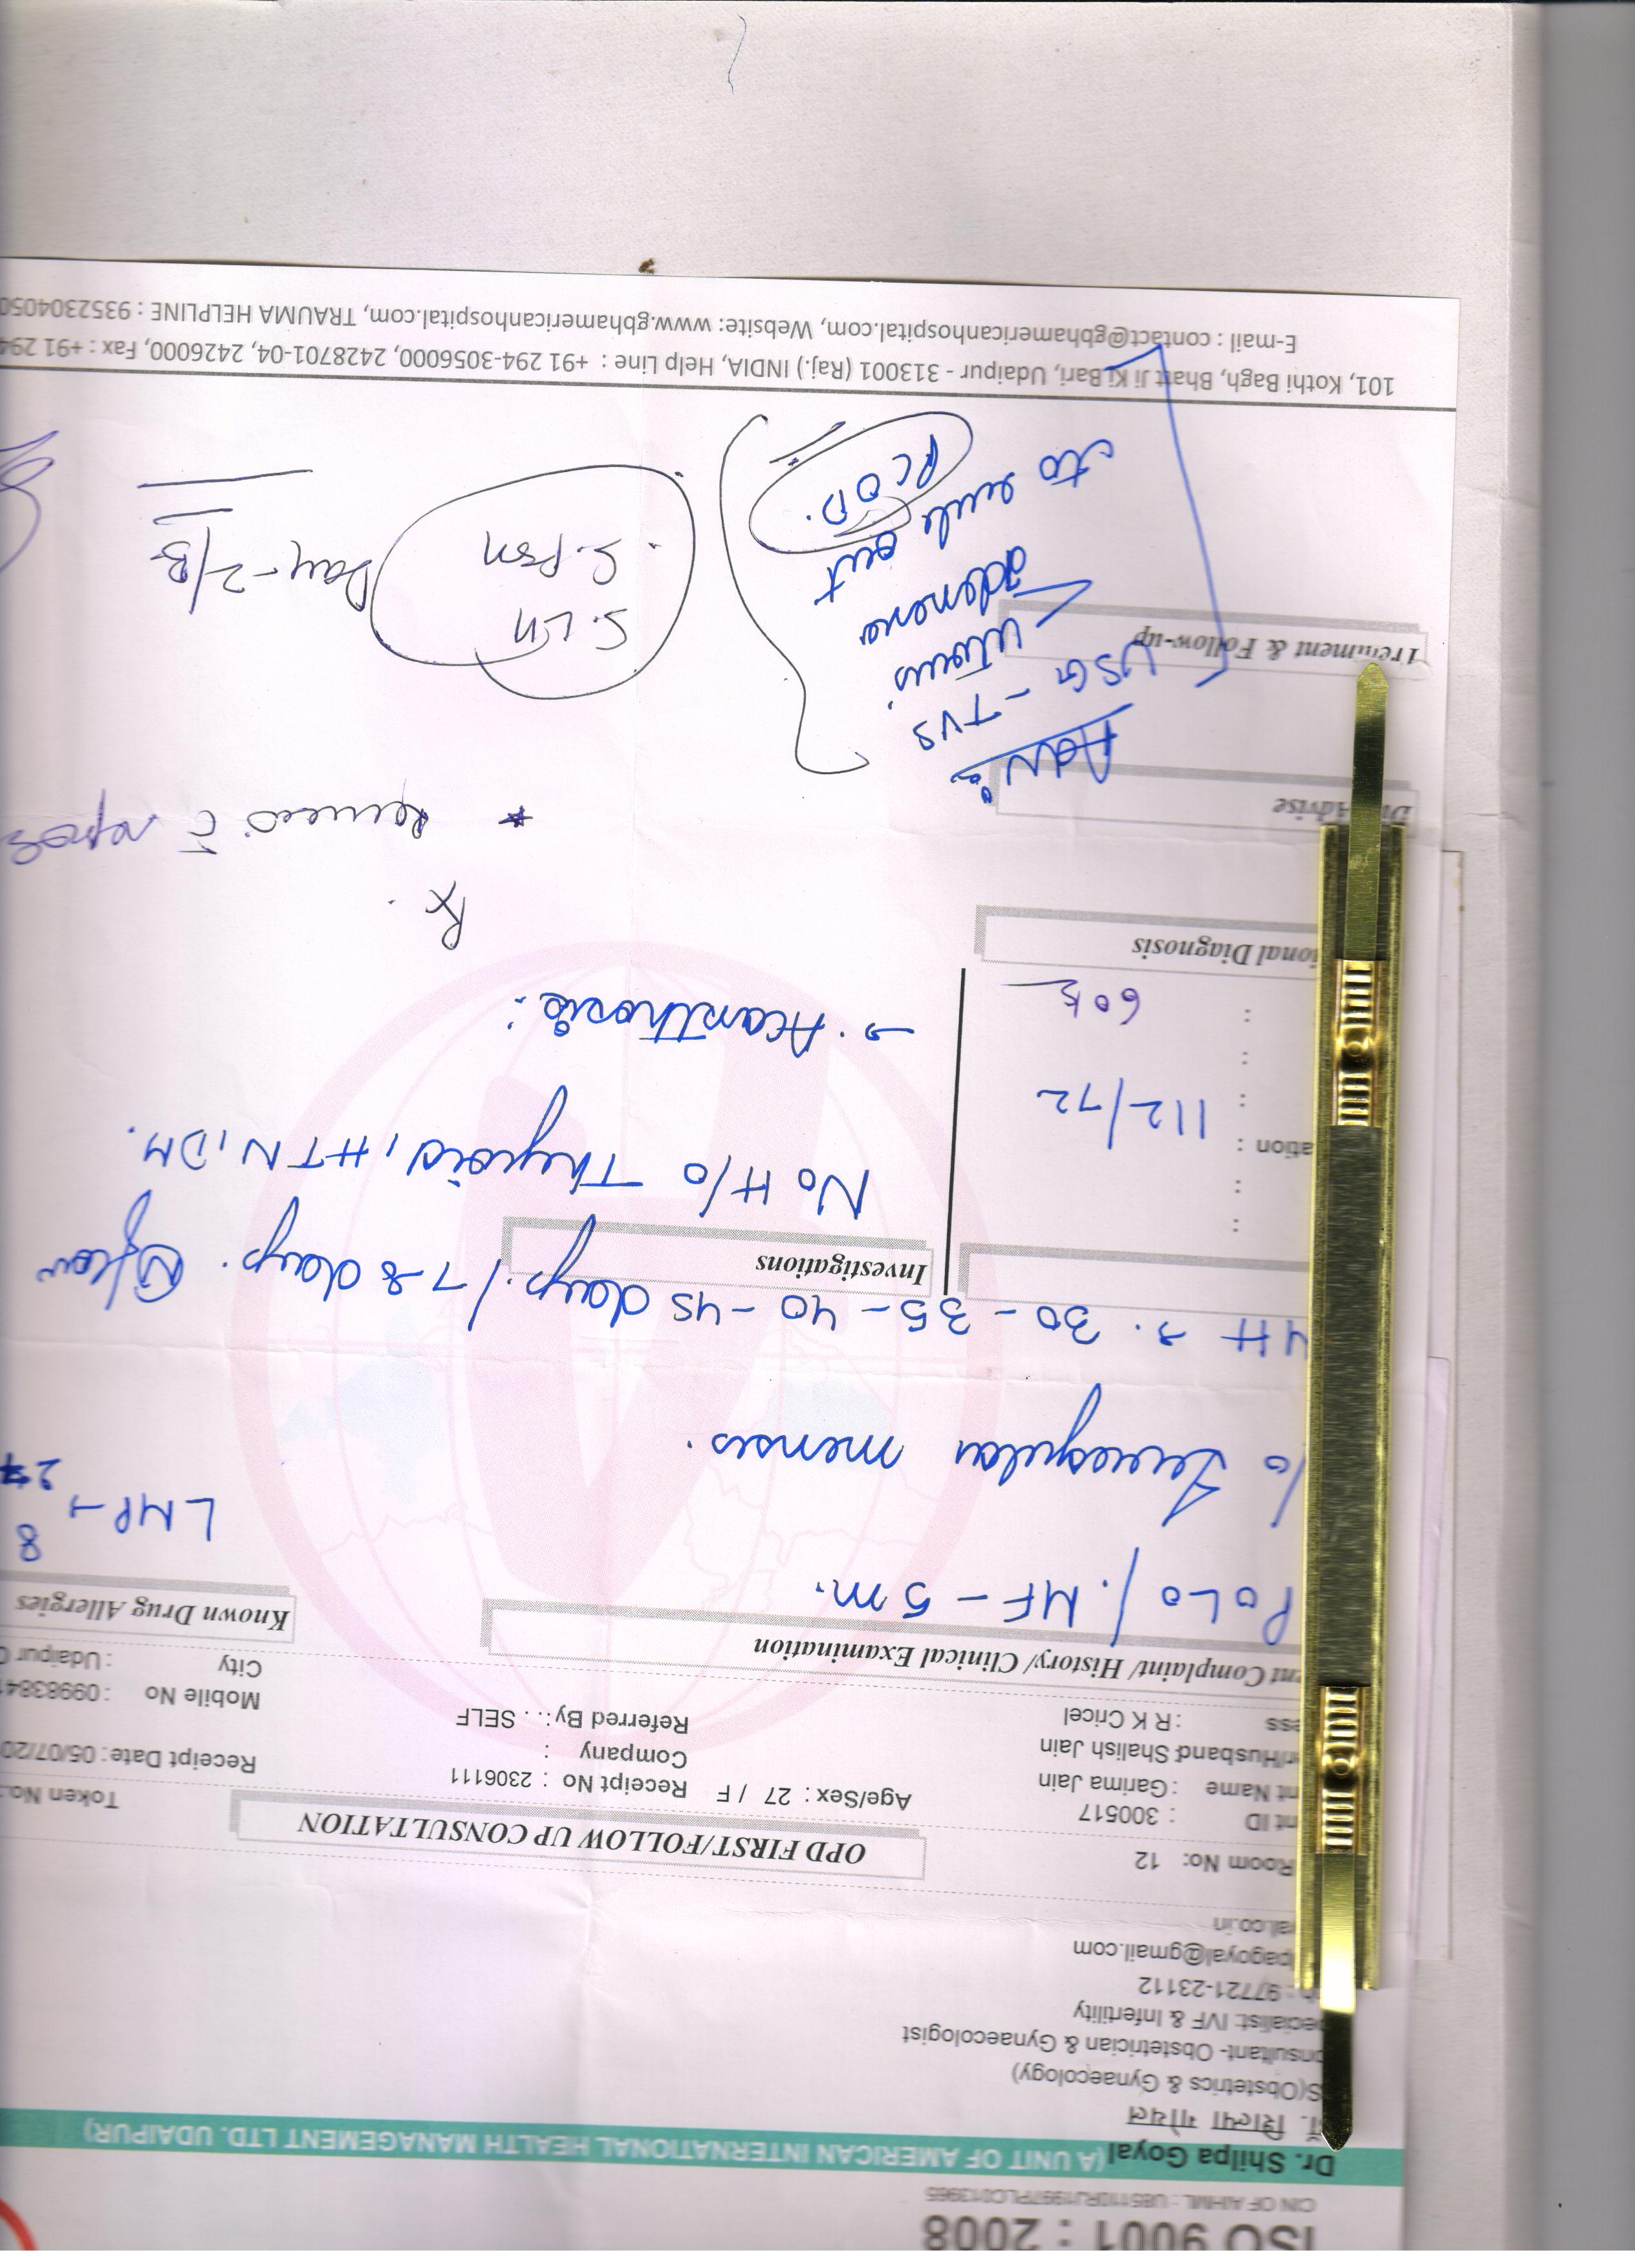 ISO 9001 : 2008
CIN OF AIHML : U85110RJ1997PLC013965
Dr. Shilpa Goyal (A UNIT OF AMERICAN INTERNATIONAL HEALTH MANAGEMENT LTD. UDAIPUR)
शिल्पा गोयल
S(Obstetrics & Gynaecology)
onsultant- Obstetrician & Gynaecologist
pecialist: IVF & Infertility
: 97721-23112
lpagoyal@gmail.com
al.co.in
Room No: 12
OPD FIRST/FOLLOW UP CONSULTATION
Token No.:
nt ID : 300517
nt Name : Garima Jain Age/Sex : 27 / F Receipt No : 2306111 Receipt Date : 05/07/20
er/Husband: Shalish Jain Company :
ess : R K Cricel Referred By: . . SELF Mobile No : 09983841
City : Udaipur
nt Complaint/ History/ Clinical Examination
Known Drug Allergies
P0L0 /. MF - 5 m.
LMP → 8
/o Irregular menses.
MH → 30 - 35 - 40 - 45 days. / 7-8 days. flow
Investigations
No H/o Thyroid, HTN, DM.
ation : 112/72
→ Acanthosis.
60
ional Diagnosis
Rx
* Review c̄ reports
Advise
Adv:
USG - TVS
Treatment & Follow-up
uterus
adenexa
to rule out
PCOD.
S. LH
S. FSH
Day-2/3
101, Kothi Bagh, Bhatt Ji Ki Bari, Udaipur - 313001 (Raj.) INDIA, Help Line : +91 294-3056000, 2428701-04, 2426000, Fax : +91 294
E-mail : contact@gbhamericanhospital.com, Website: www.gbhamericanhospital.com, TRAUMA HELPLINE : 9352304050